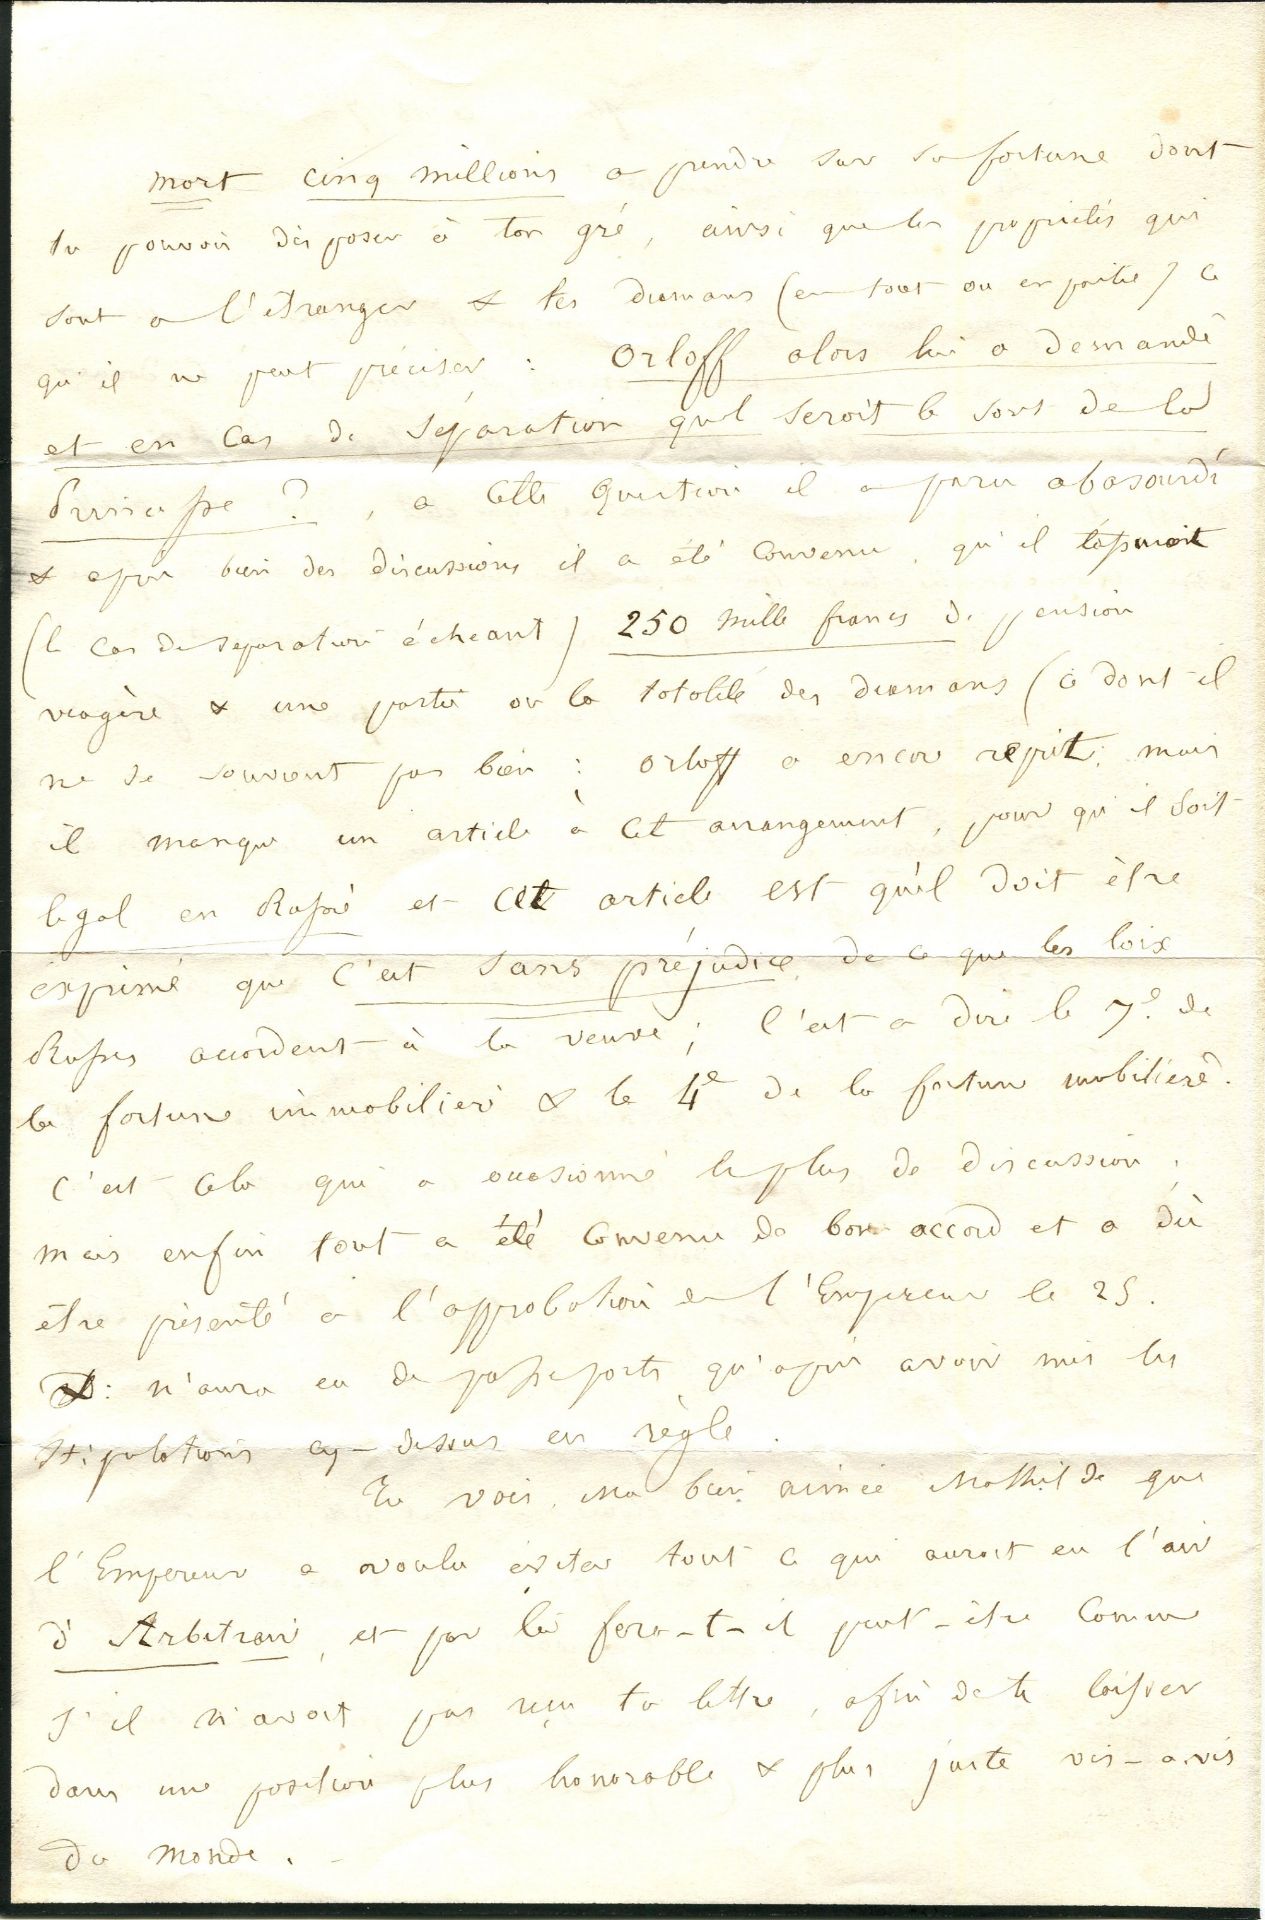 mort cinq millions a prendre sur sa fortune dont
tu pouvois disposer à ton gré, ainsi que les propriétés qui
sont a l'étranger & tes diamans (en tout ou en partie) ce
qu'il ne peut préciser : Orloff alors lui a demandé
et en cas de séparation quel seroit le sort de la
Princesse ? , a cette question il a paru abasourdi
& après bien des discussions il a été convenu, qu'il t'assuroit
(le cas de separation échéant) 250 mille francs de pension
viagère & une partie ou la totalité des diamans (ce dont il
ne se souvient pas bien : Orloff a encor reprit : mais
il manque un article à cet arrangement, pour qu'il soit
legal en Russie et cet article est qu'il doit être
exprimé que c'est sans préjudice de ce que les loix
Russes accordent à la veuve ; c'est a dire le 7e de
la fortune immobiliere & le 4e de la fortune mobiliere.
C'est cela qui a occasionné le plus de discussion,
mais enfin tout a été convenu de bon accord et a dû
être présenté a l'approbation de l'Empereur le 25.
D: n'aura eu de passeports qu'après avoir mis les
stipulations cy-dessus en règle.
Tu vois, ma bien aimée Mathilde que
l'Empereur a voulu éviter tout ce qui auroit eu l'air
d'Arbitraire, et par là fera-t-il peut-être comme
s'il n'avoit pas reçu ta lettre, afin de te laisser
dans une position plus honorable & plus juste vis-a-vis
du monde. -